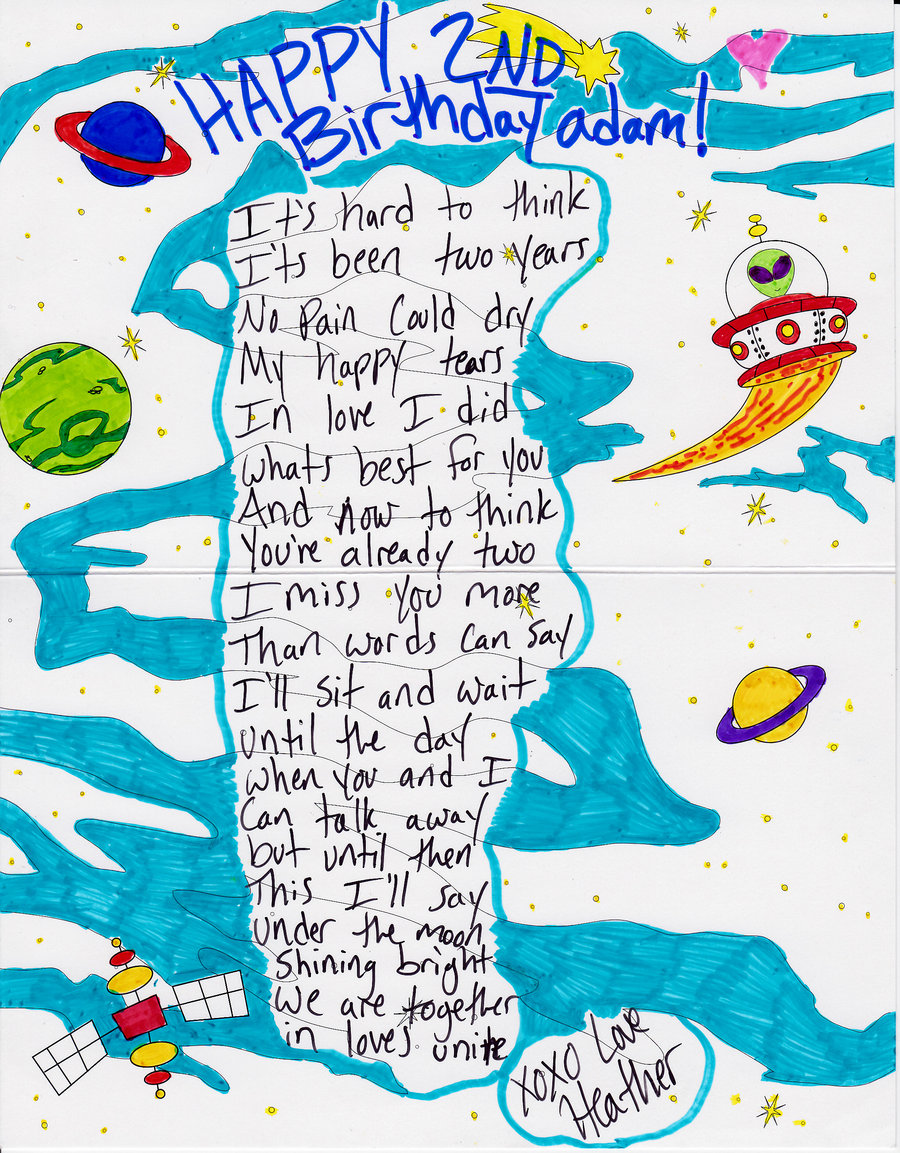 HAPPY 2ND
Birthday adam!
It's hard to think
It's been two years
No pain could dry
My happy tears
In love I did
whats best for you
And now to think
You're already two
I miss you more
Than words can say
I'll sit and wait
until the day
when you and I
can talk away
but until then
This I'll say
under the moon
shining bright
we are together
in loves unite
XOXO Love
Heather